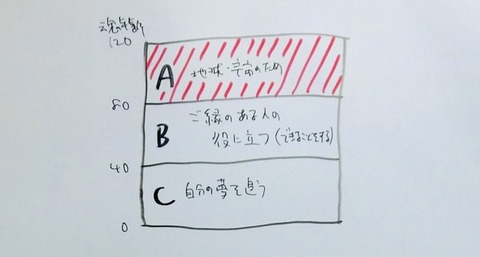 魂年齢
120
A 地球・宇宙のため
80
ご縁のある人の
B 役に立つ(できることをする)
40
C 自分の夢を追う
0